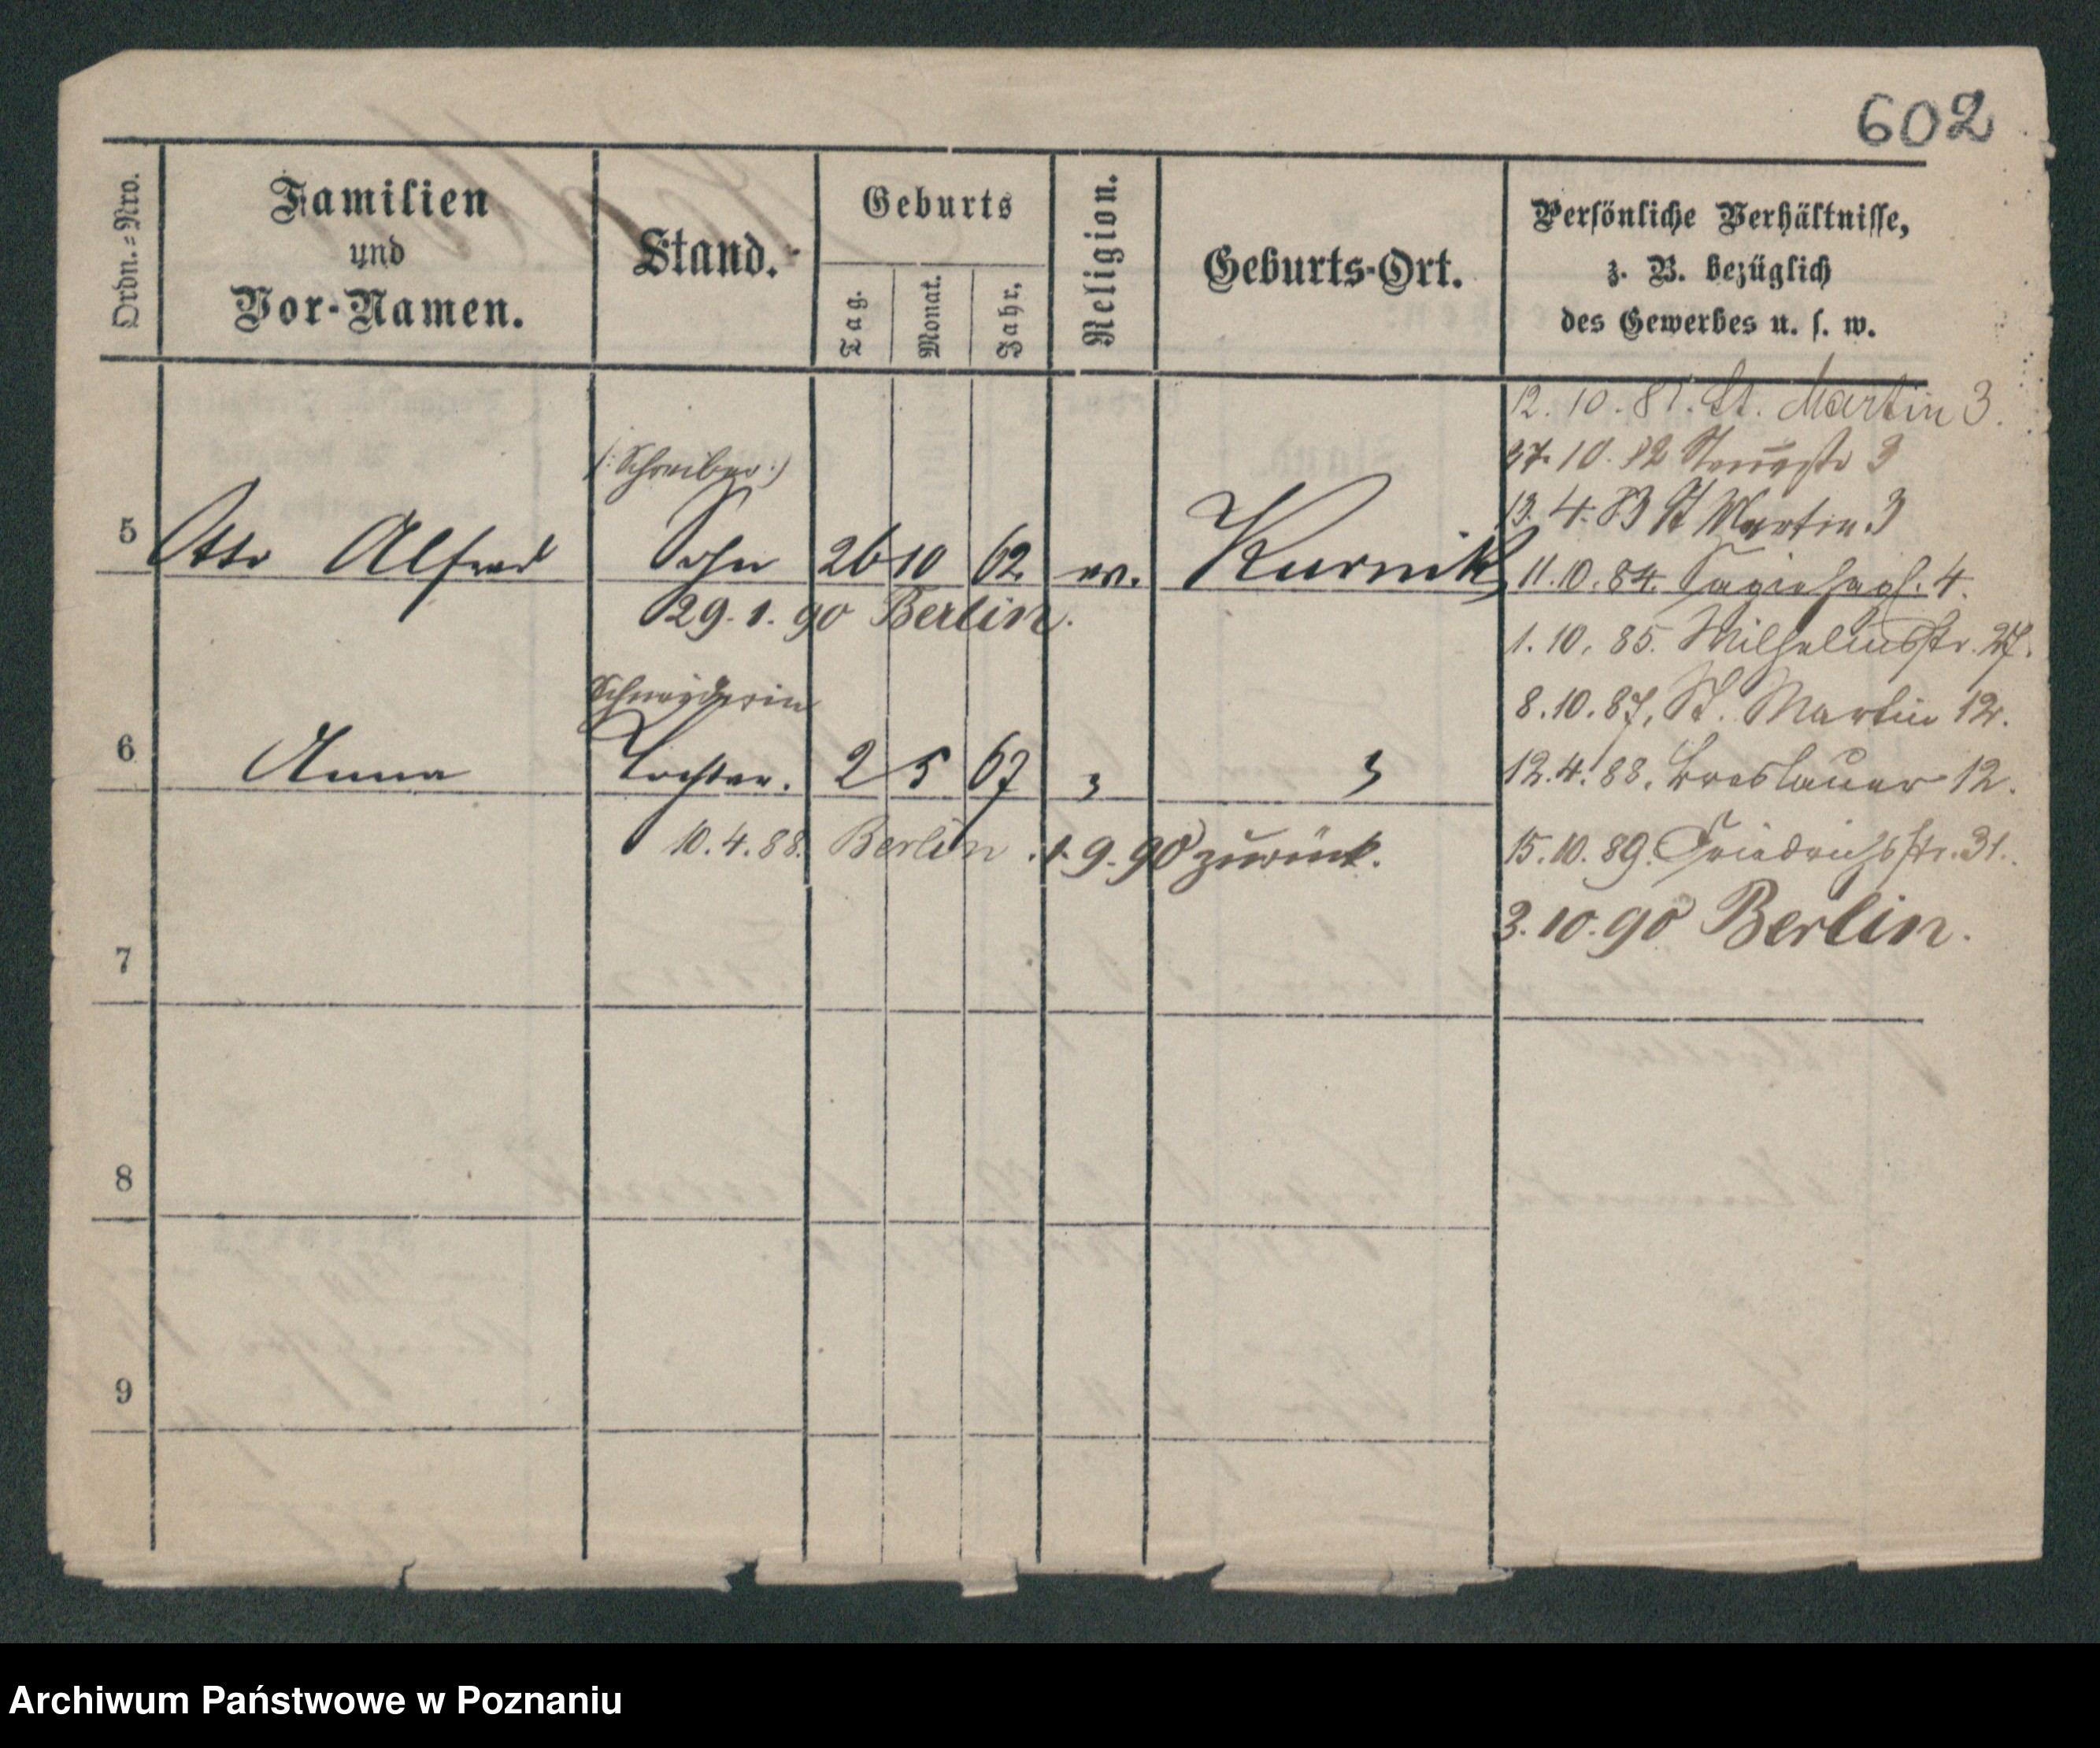 602
Ordn.=Nro.
Familien
und
Vor-Namen.
Stand.
Geburts
Tag.
Monat.
Jahr.
Religion.
Geburts-Ort.
Persönliche Verhältnisse,
z. B. bezüglich
des Gewerbes u. s. w.
(: Schreiber :)
5 Otto Alfred Sohn 26 10 62 ev. Kurnik
29.1.90 Berlin.
Schneiderin
6 Anna Tochter. 2 5 67 " "
10.4.88. Berlin. 1.9.90 zurück.
7
8
9
12.10.81. St. Martin 3.
27.10.82 3
13.4.83 St Martin 3
11.10.84. 4.
1.10.85. Wilhelmsstr. 27.
8.10.87, St. Martin 12.
12.4.88, Breslauer 12.
15.10.89. Friedrichsstr. 31.
3.10.90 Berlin.
Archiwum Państwowe w Poznaniu